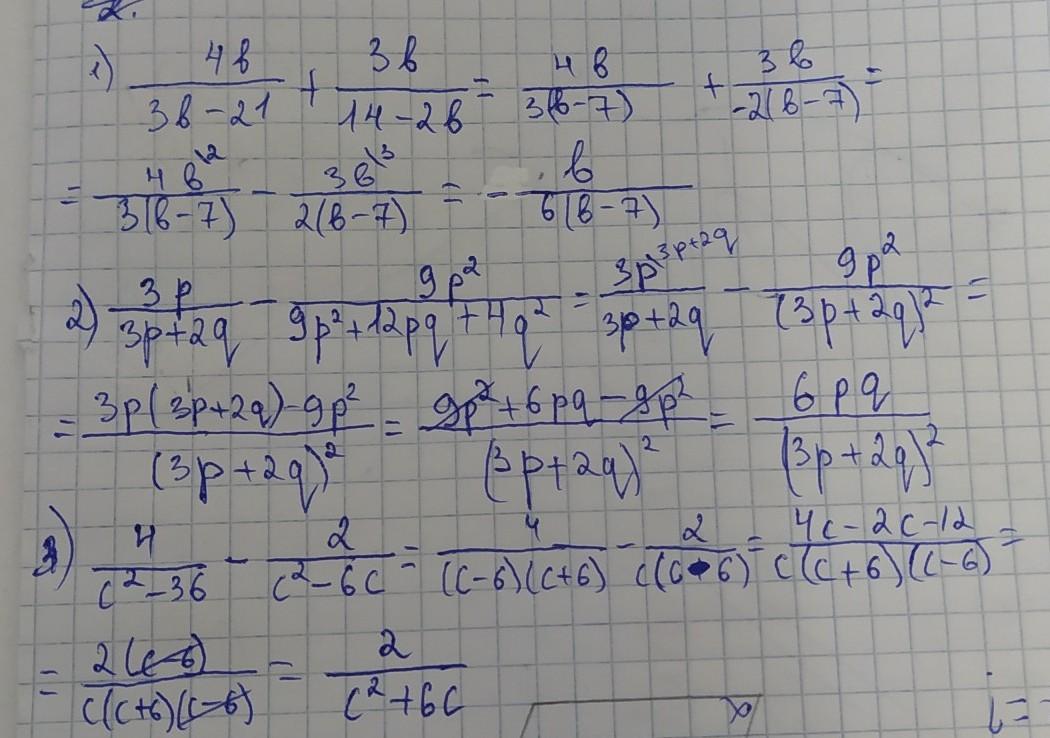 2.
1) 4b/(3b-21) + 3b/(14-2b) = 4b/(3(b-7)) + 3b/(-2(b-7)) =
= 4b\2/(3(b-7)) - 3b\3/(2(b-7)) = - b/(6(b-7))
2) 3p/(3p+2q) - 9p²/(9p²+12pq+4q²) = 3p\3p+2q/(3p+2q) - 9p²/(3p+2q)² =
= (3p(3p+2q)-9p²)/(3p+2q)² = (9p²+6pq-9p²)/(3p+2q)² = 6pq/(3p+2q)²
3) 4/(c²-36) - 2/(c²-6c) = 4/((c-6)(c+6)) - 2/(c(c-6)) = (4c-2c-12)/(c(c+6)(c-6)) =
= 2(c-6)/(c(c+6)(c-6)) = 2/(c²+6c)